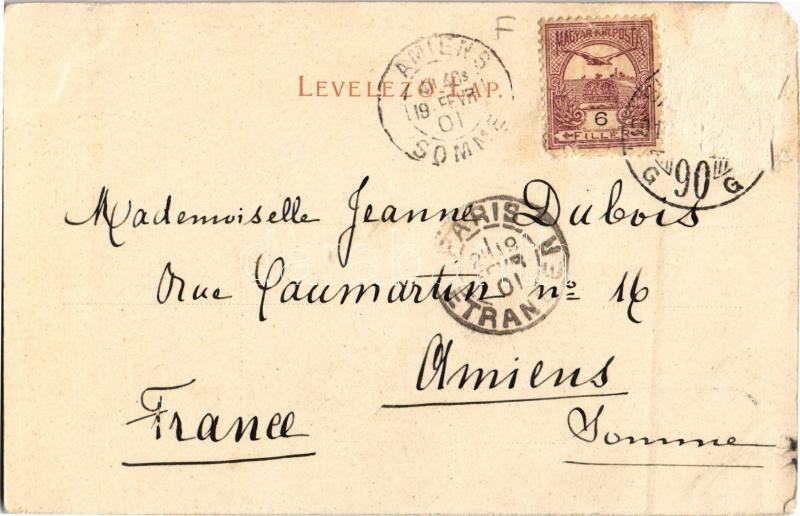 F
AMIENS
19 FEVR
01
SOMME
LEVELEZŐ-LAP.
MAGYAR KIR. POSTA
6
FILLER
90
G G
Mademoiselle Jeanne Dubois
PARIS
19
01
ETRANGER
Rue Caumartin nº 16
Amiens
France
Somme
darabanth